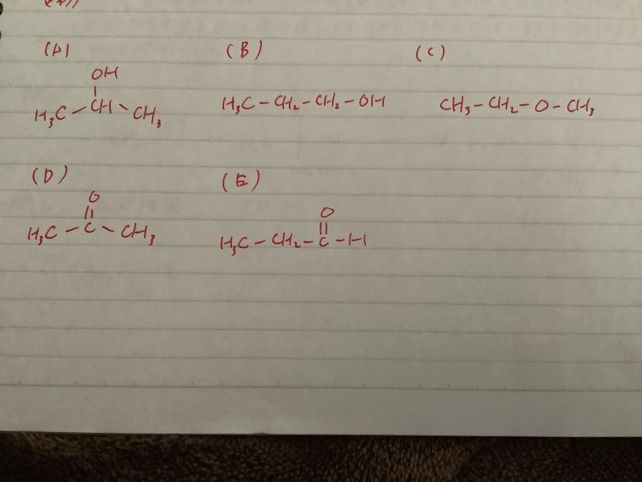 (A) (B) (C)
OH
H₃C - CH - CH₃ H₃C - CH₂ - CH₂ - OH CH₃ - CH₂ - O - CH₃
(D) (E)
O O
H₃C - C - CH₃ H₃C - CH₂ - C - H